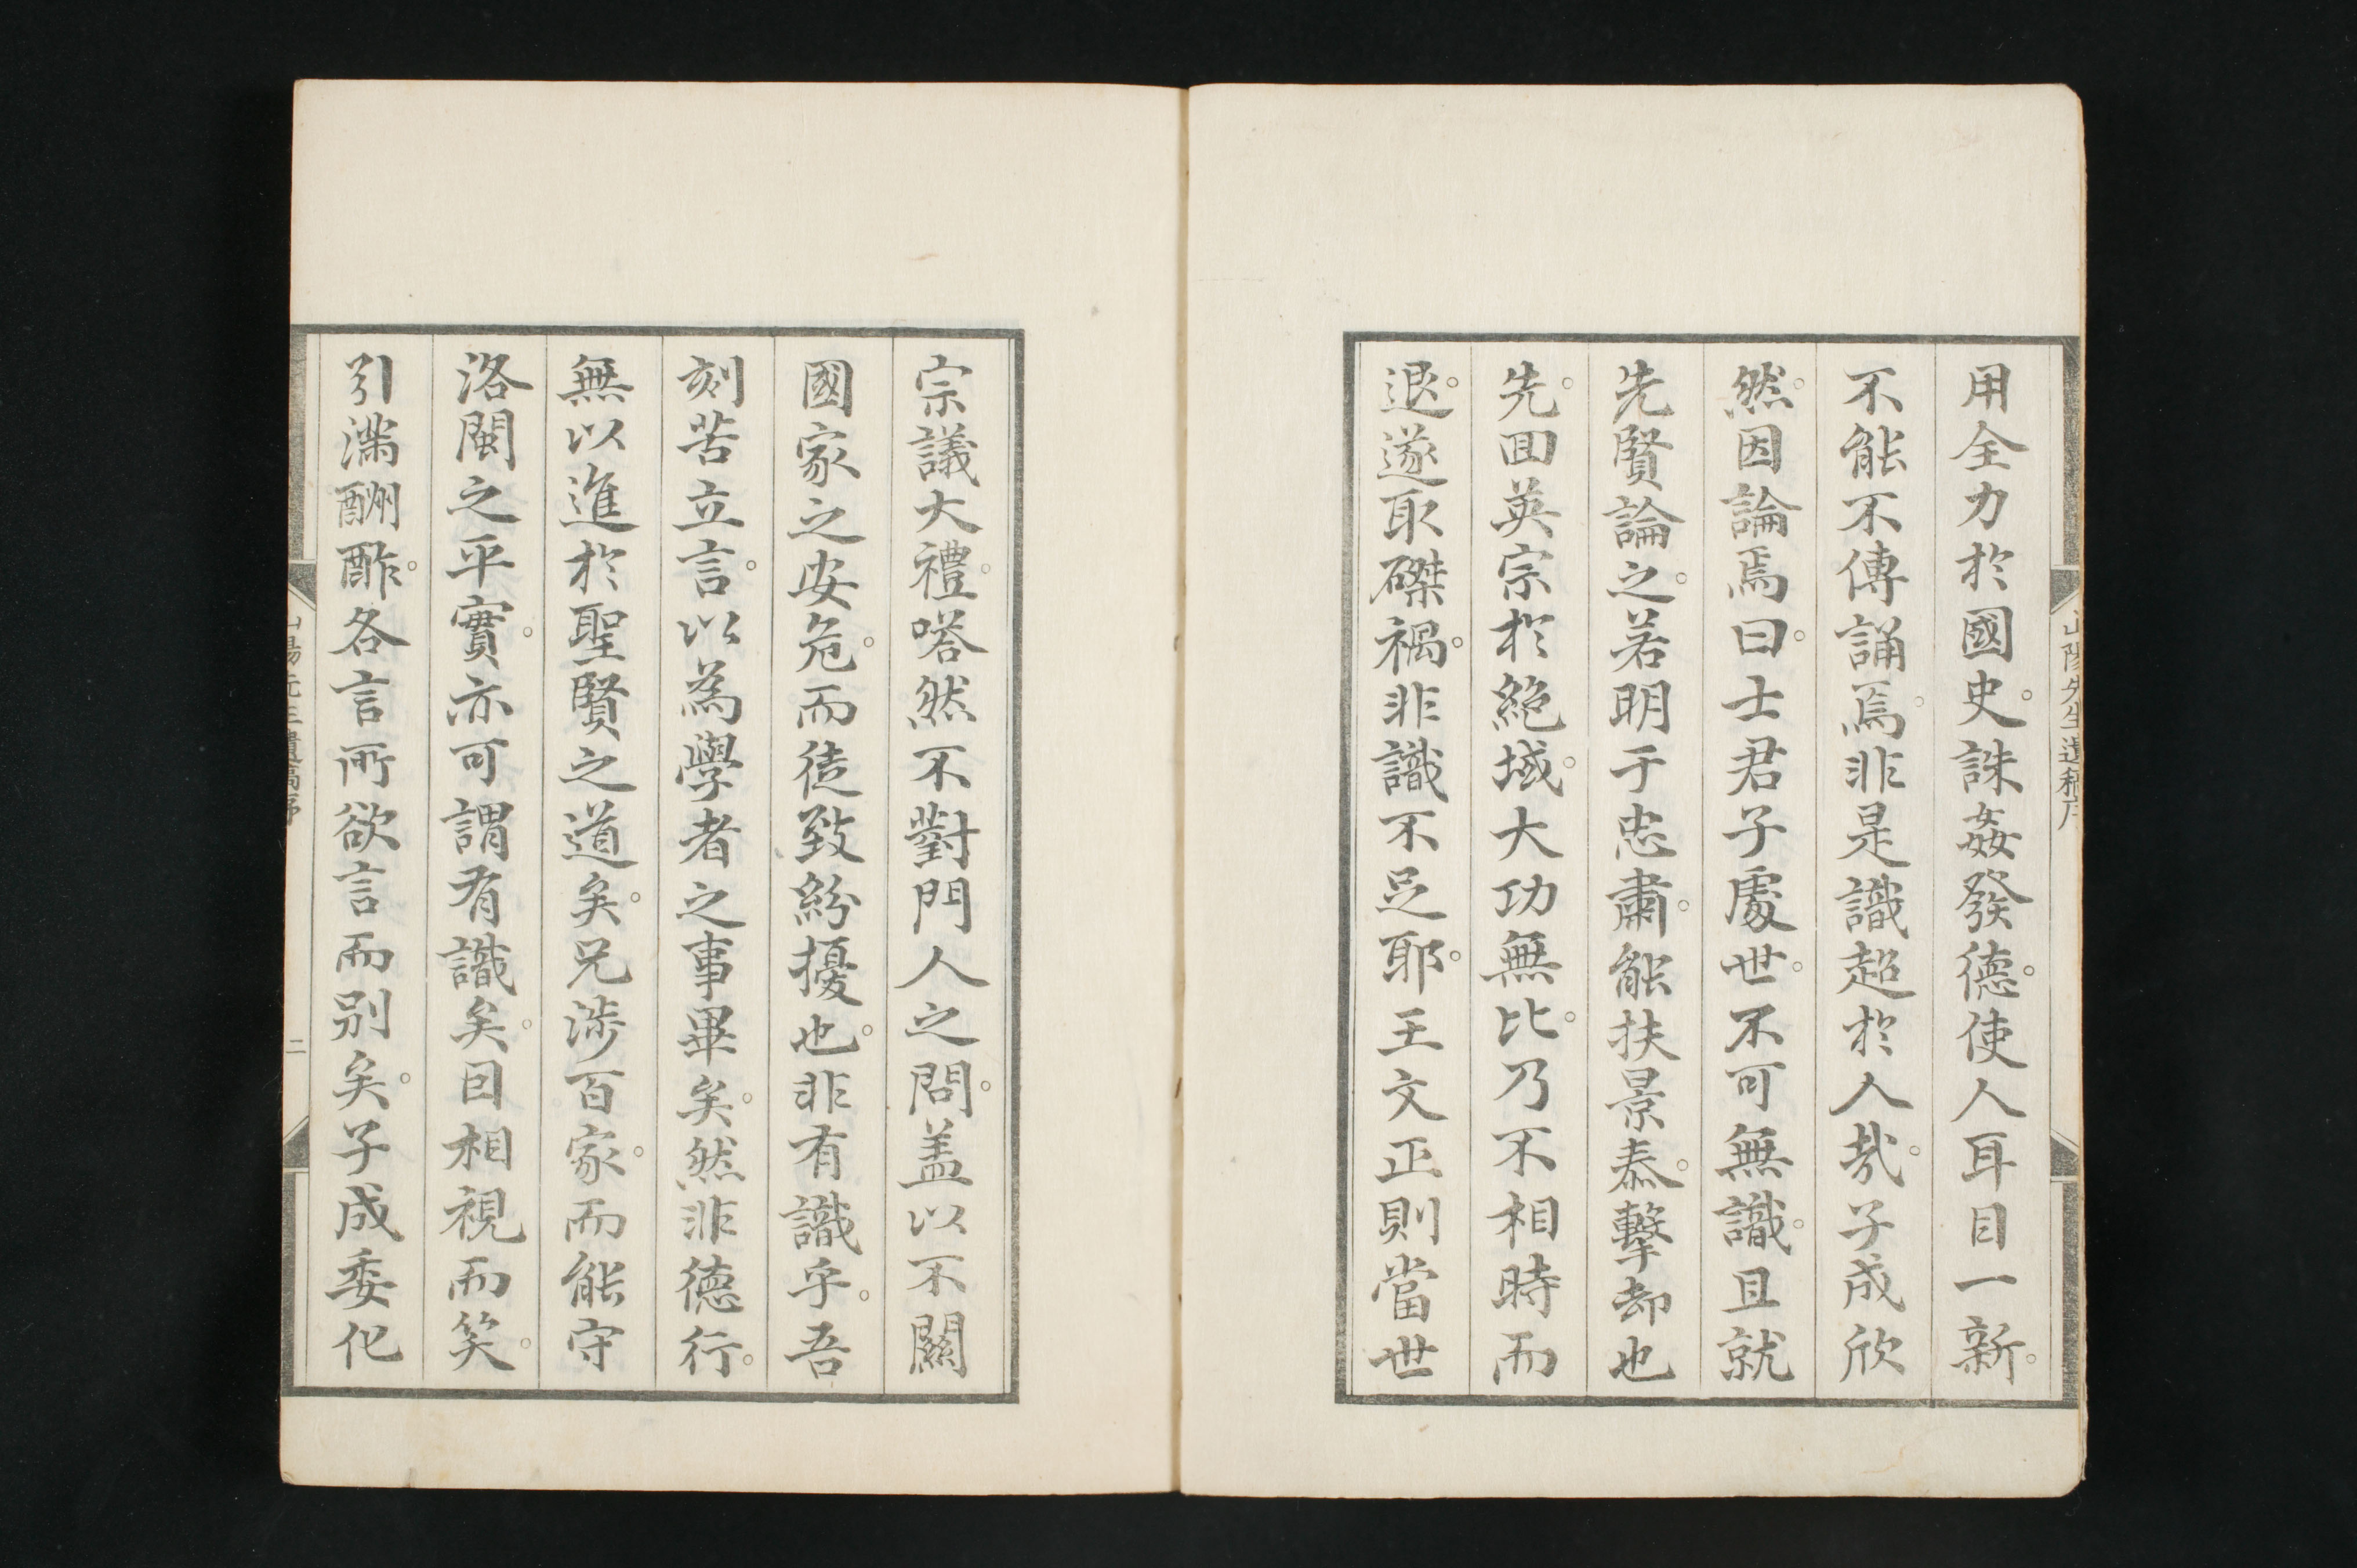 用全力於國史。誅姦發德。使人耳目一新。
不能不傳誦焉。非是識超於人哉。子成欣
然。因論焉曰。士君子處世。不可無識。且就
先賢論之。若明于忠肅。能扶景泰。擊却也
先。回英宗於絕域。大功無比。乃不相時而
退。遂取磔禍。非識不足耶。王文正則當世
宗議大禮。嗒然不對門人之問。盖以不關
國家之安危。而徒致紛擾也。非有識乎。吾
刻苦立言。以為學者之事畢矣。然非德行。
無以進於聖賢之道矣。兄涉百家。而能守
洛閩之平實。亦可謂有識矣。因相視而笑。
引滿酬酢。各言所欲言而別矣。子成委化
山陽先生遺稿序
二